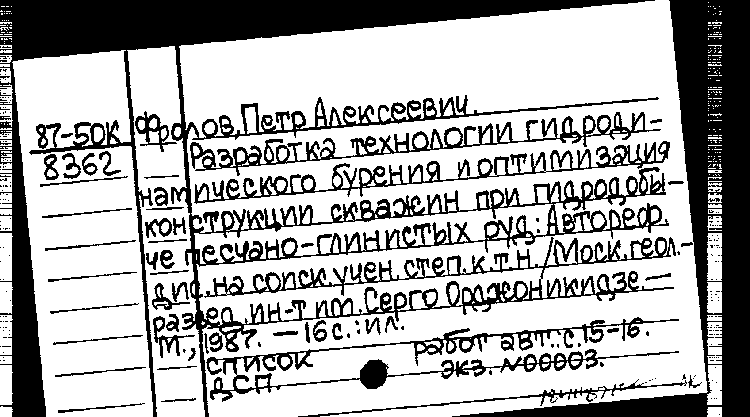 87-50К Фролов, Петр Алексеевич.
8362 Разработка технологии гидроди-
намического бурения и оптимизация
конструкции скважин при гидродобы-
че песчано-глинистых руд: Автореф.
дис. на соиск. учен. степ. к.т.н. / Моск. геол.-
развед. ин-т им. Серго Орджоникидзе. —
М., 1987. — 16 с. : ил.
список работ авт.: с.15-16.
ДСП. экз. №00003.